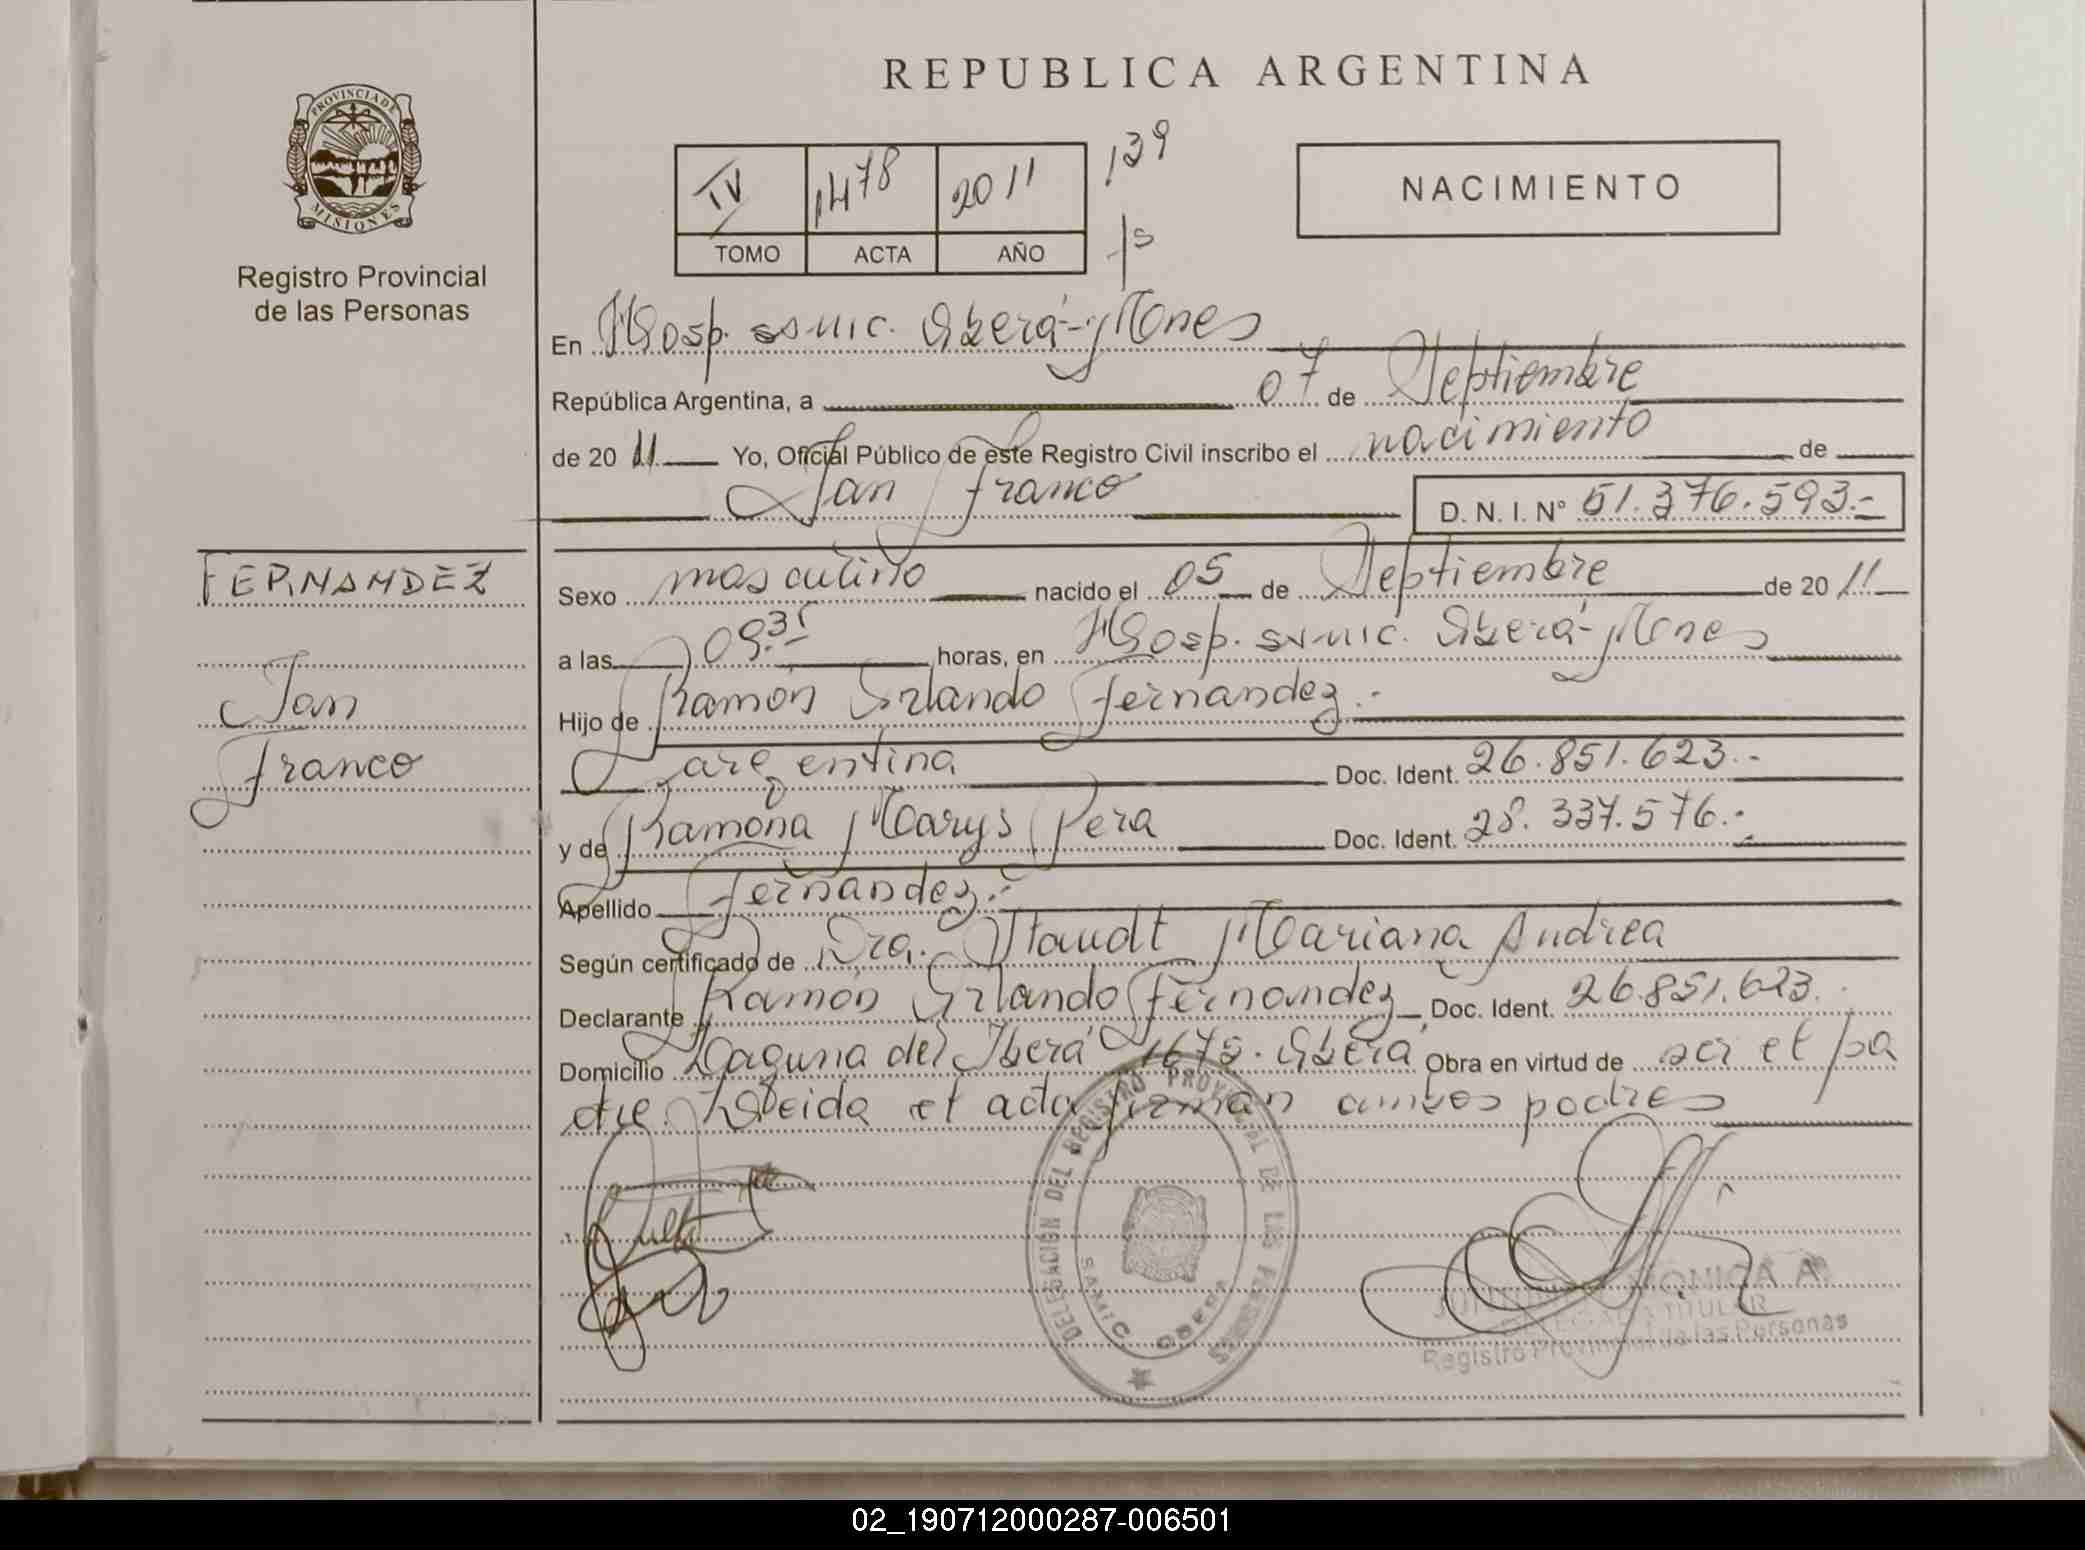 PROVINCIA DE
MISIONES
Registro Provincial
de las Personas
REPUBLICA ARGENTINA
IV 1478 2011 139
TOMO ACTA AÑO
NACIMIENTO
En Hosp. ssmic. Oberá-Mones
República Argentina, a 07 de Septiembre
de 2011 Yo, Oficial Público de este Registro Civil inscribo el nacimiento de
Ian Franco D. N. I. Nº 51.376.593.-
FERNANDEZ
Ian
Franco
Sexo masculino nacido el 05 de Septiembre de 2011
a las 09.35 horas, en Hosp. ssmic. Oberá-Mones
Hijo de Ramón Orlando Fernandez.-
argentina Doc. Ident. 26.851.623.-
y de Ramona Marys Pera Doc. Ident. 28.337.576.-
Apellido Fernandez.-
Según certificado de Dra. Staudt Mariana Andrea
Declarante Ramón Orlando Fernandez Doc. Ident. 26.851.623.
Domicilio Laguna del Iberá 1675. Oberá Obra en virtud de ser el pa
dre. Leida el acta firman ambos padres
DELEGACIÓN DEL REGISTRO PROVINCIAL DE LAS PERSONAS
SAMIC OBERA
MONICA A.
DELEGADA TITULAR
Registro Provincial de las Personas
02_190712000287-006501